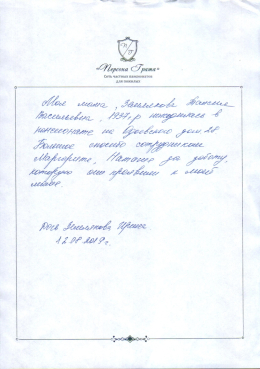 «Персона Грата»
Сеть частных пансионатов
для пожилых
Моя мама, Наталья
Васильевна, 1937 г.р. находилась в
пансионате на дом 28
Большое спасибо сотрудникам
Маргарите, Наталье за заботу,
которую они проявили к моей
маме.
Дочь Ирина
12.08.2019г.